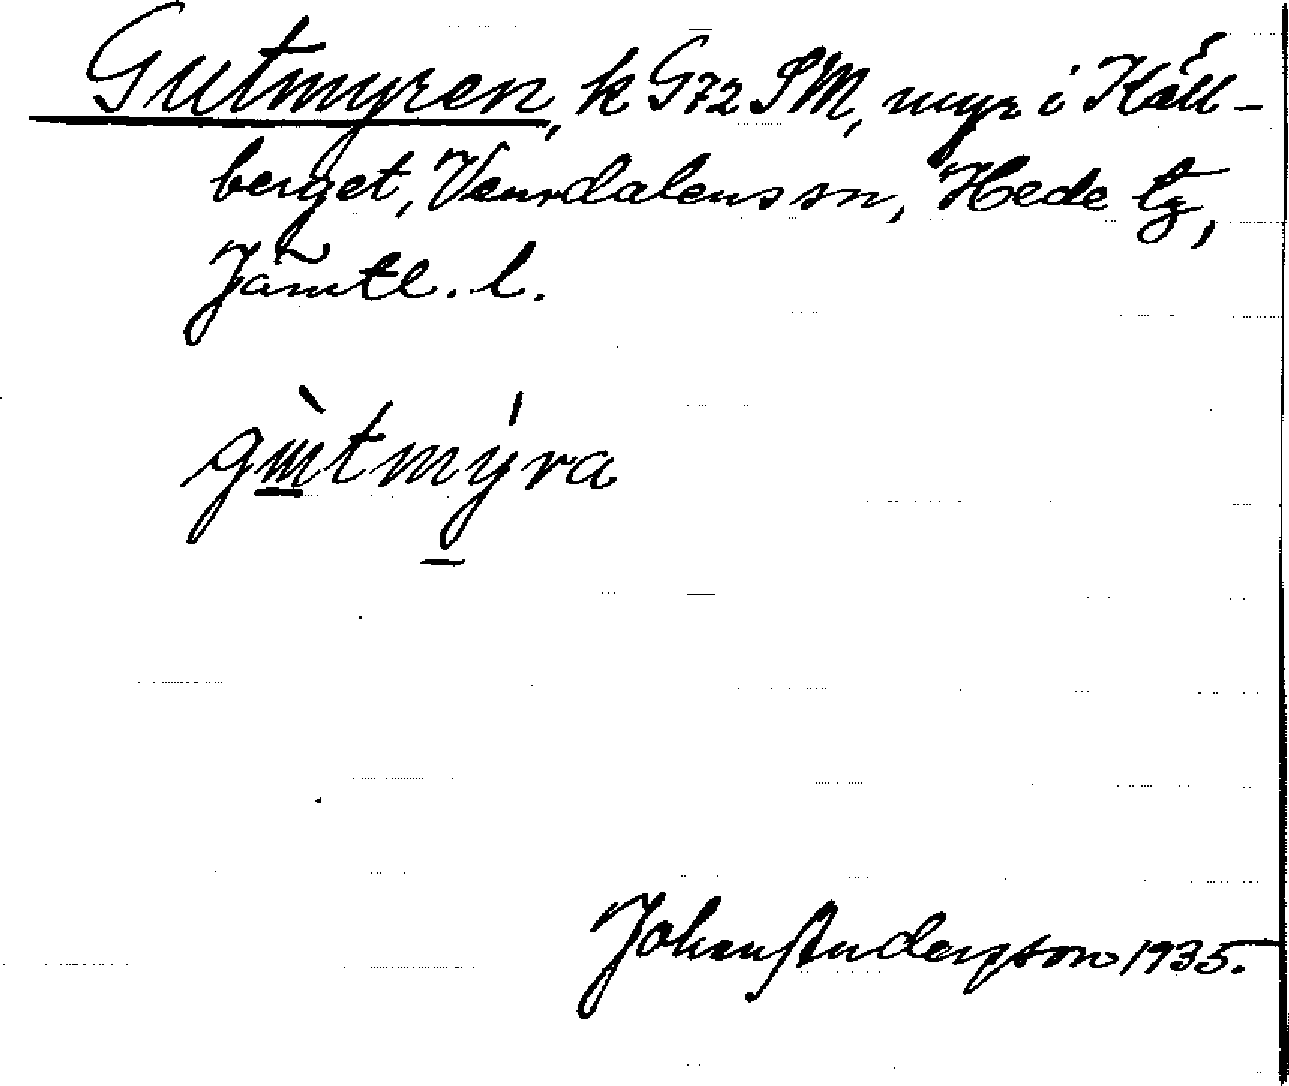 Gutmyren, k G72 SM, myr i Käll-
berget, Vemdalens sn, Hede tg,
Jämtl. l.
gùtmýra
Johan Andersson 1935.